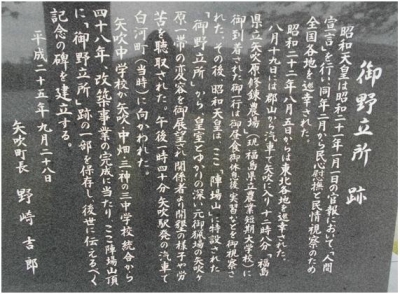 御野立所 跡
昭和天皇は昭和二十一年一月一日の官報において、「人間
宣言」を行い、同年二月から民心慰撫と民情視察のため
全国各地を巡幸された。
昭和二十二年八月五日からは東北各地を巡幸された。
八月十九日には郡山から汽車で矢吹に入り十二時八分「福島
県立矢吹原修錬農場」(現福島県立農業短期大学校)に
御到着された御一行は御昼食御休息後、実習などを御視察さ
れた。その後、昭和天皇は、ここ「陣場山」に特設された
「御野立所」から皇室とゆかりの深い元御猟場の矢吹ヶ
原一帯の変容を御展望され関係者より開墾の様子や労
苦を聴取された。午後一時四十分矢吹駅発の汽車で
白河町(当時)に向かわれた。
矢吹中学校が矢吹、中畑、三神の三中学校統合から
四十八年、改築事業の完成に当たり、ここ陣場山頂
に、「御野立所」跡の一部を保存し、後世に伝えるべく
記念の碑を建立する。
平成二十五年九月二十八日
矢吹町長 野崎吉郎